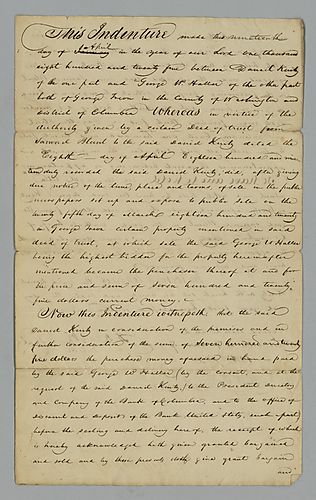 This Indenture made this nineteenth
day of January April in the year of our Lord one thousand
eight hundred and twenty five between Daniel
of the one part and George W. Haller of the other part
both of George Town in the County of Washington and
District of Columbia Whereas in virtue of the
authority given by a certain Deed of trust from
Samuel to the said Daniel dated the
Eighth day of April Eighteen hundred and
duly recorded the said Daniel did, after giving
due notice of the time, place and terms of sale in the public
newspapers set up and expose to public sale on the
twenty fifth day of March eighteen hundred and twenty
in George Town certain property mentioned in said
deed of trust, at which sale the said George W Haller
being the highest bidder for the property hereinafter
mentioned became the purchaser thereof at and for
the price and sum of Seven hundred and twenty
five dollars current money,
Now this Indenture witnesseth, that the said
Daniel in consideration of the premises and in
further consideration of the sum of Seven hundred and twenty
five dollars the purchase money aforesaid in hand paid
by the said George W Haller (by the consent, and at the
request of the said Daniel) to the President directors
and Company of the Bank of Columbia, and to the office of
Discount and deposit of the Bank United States,
before the sealing and delivery hereof, the receipt of which
is hereby acknowledged hath given granted bargained
and sold and by these presents doth give grant bargain
and